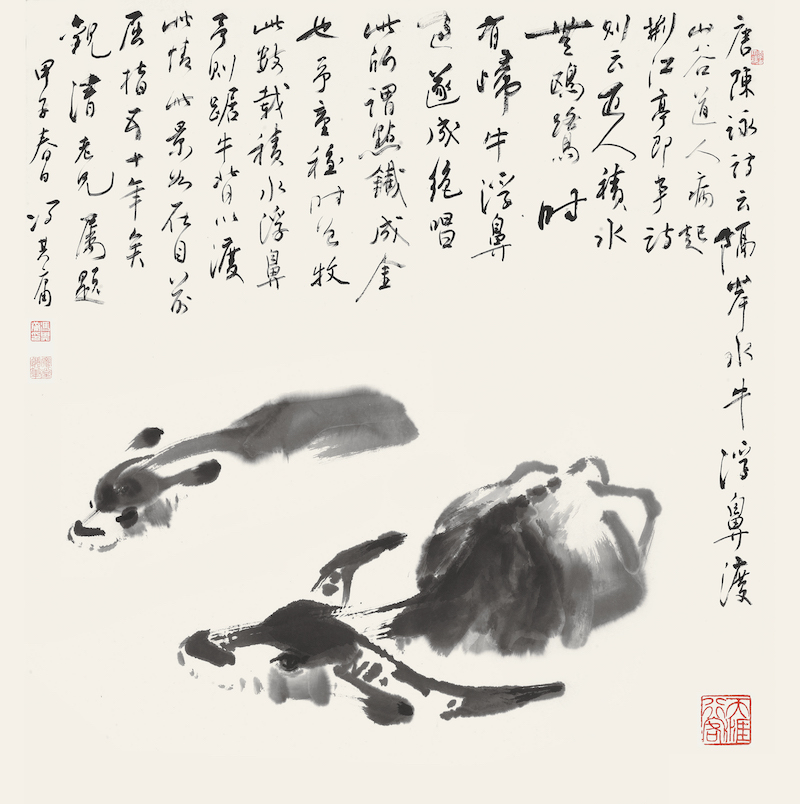 唐陳詠詩云隔岸水牛浮鼻渡
山谷道人病起
荆江亭即事詩
则云近人積水
無鷗鷺時
有歸牛浮鼻
過遂成絶唱
此所謂點鐵成金
也予童穉时牧
此数载積水浮鼻
予则踞牛背以渡
此情此景如在目前
屈指五十年矣
觀清老兄屬題
甲子春日馮其庸
天涯
行客